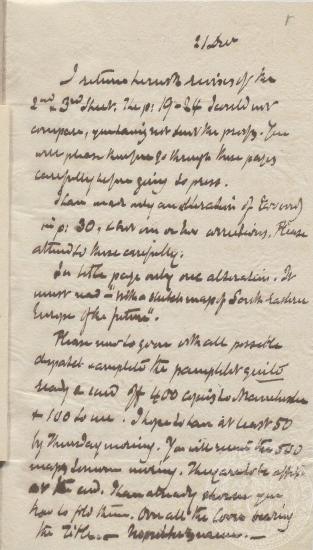 21 Dec
I return herewith revises of the
2nd & 3rd Sheet. The p: 19-24 I could not
compare, you having not sent the proofs. You
will please therefore go through these pages
carefully before going to press.
I have made only an alteration of two words
in p: 30, & but one or two corrections. Please
attend to these carefully.
In title page only one alteration. It
must read "With a sketch map of South Eastern
Europe of the future".
Please now to go on with all possible
dispatch & complete the pamphlet quite
ready & send off 400 copies to Manchester
& 100 to me. I hope to have at least 50
by Thursday morning. You will receive the 500
maps tomorrow morning. They are to be affixed
at the end. I have already shown you
how to fold them. On all the cover bearing
the Title.